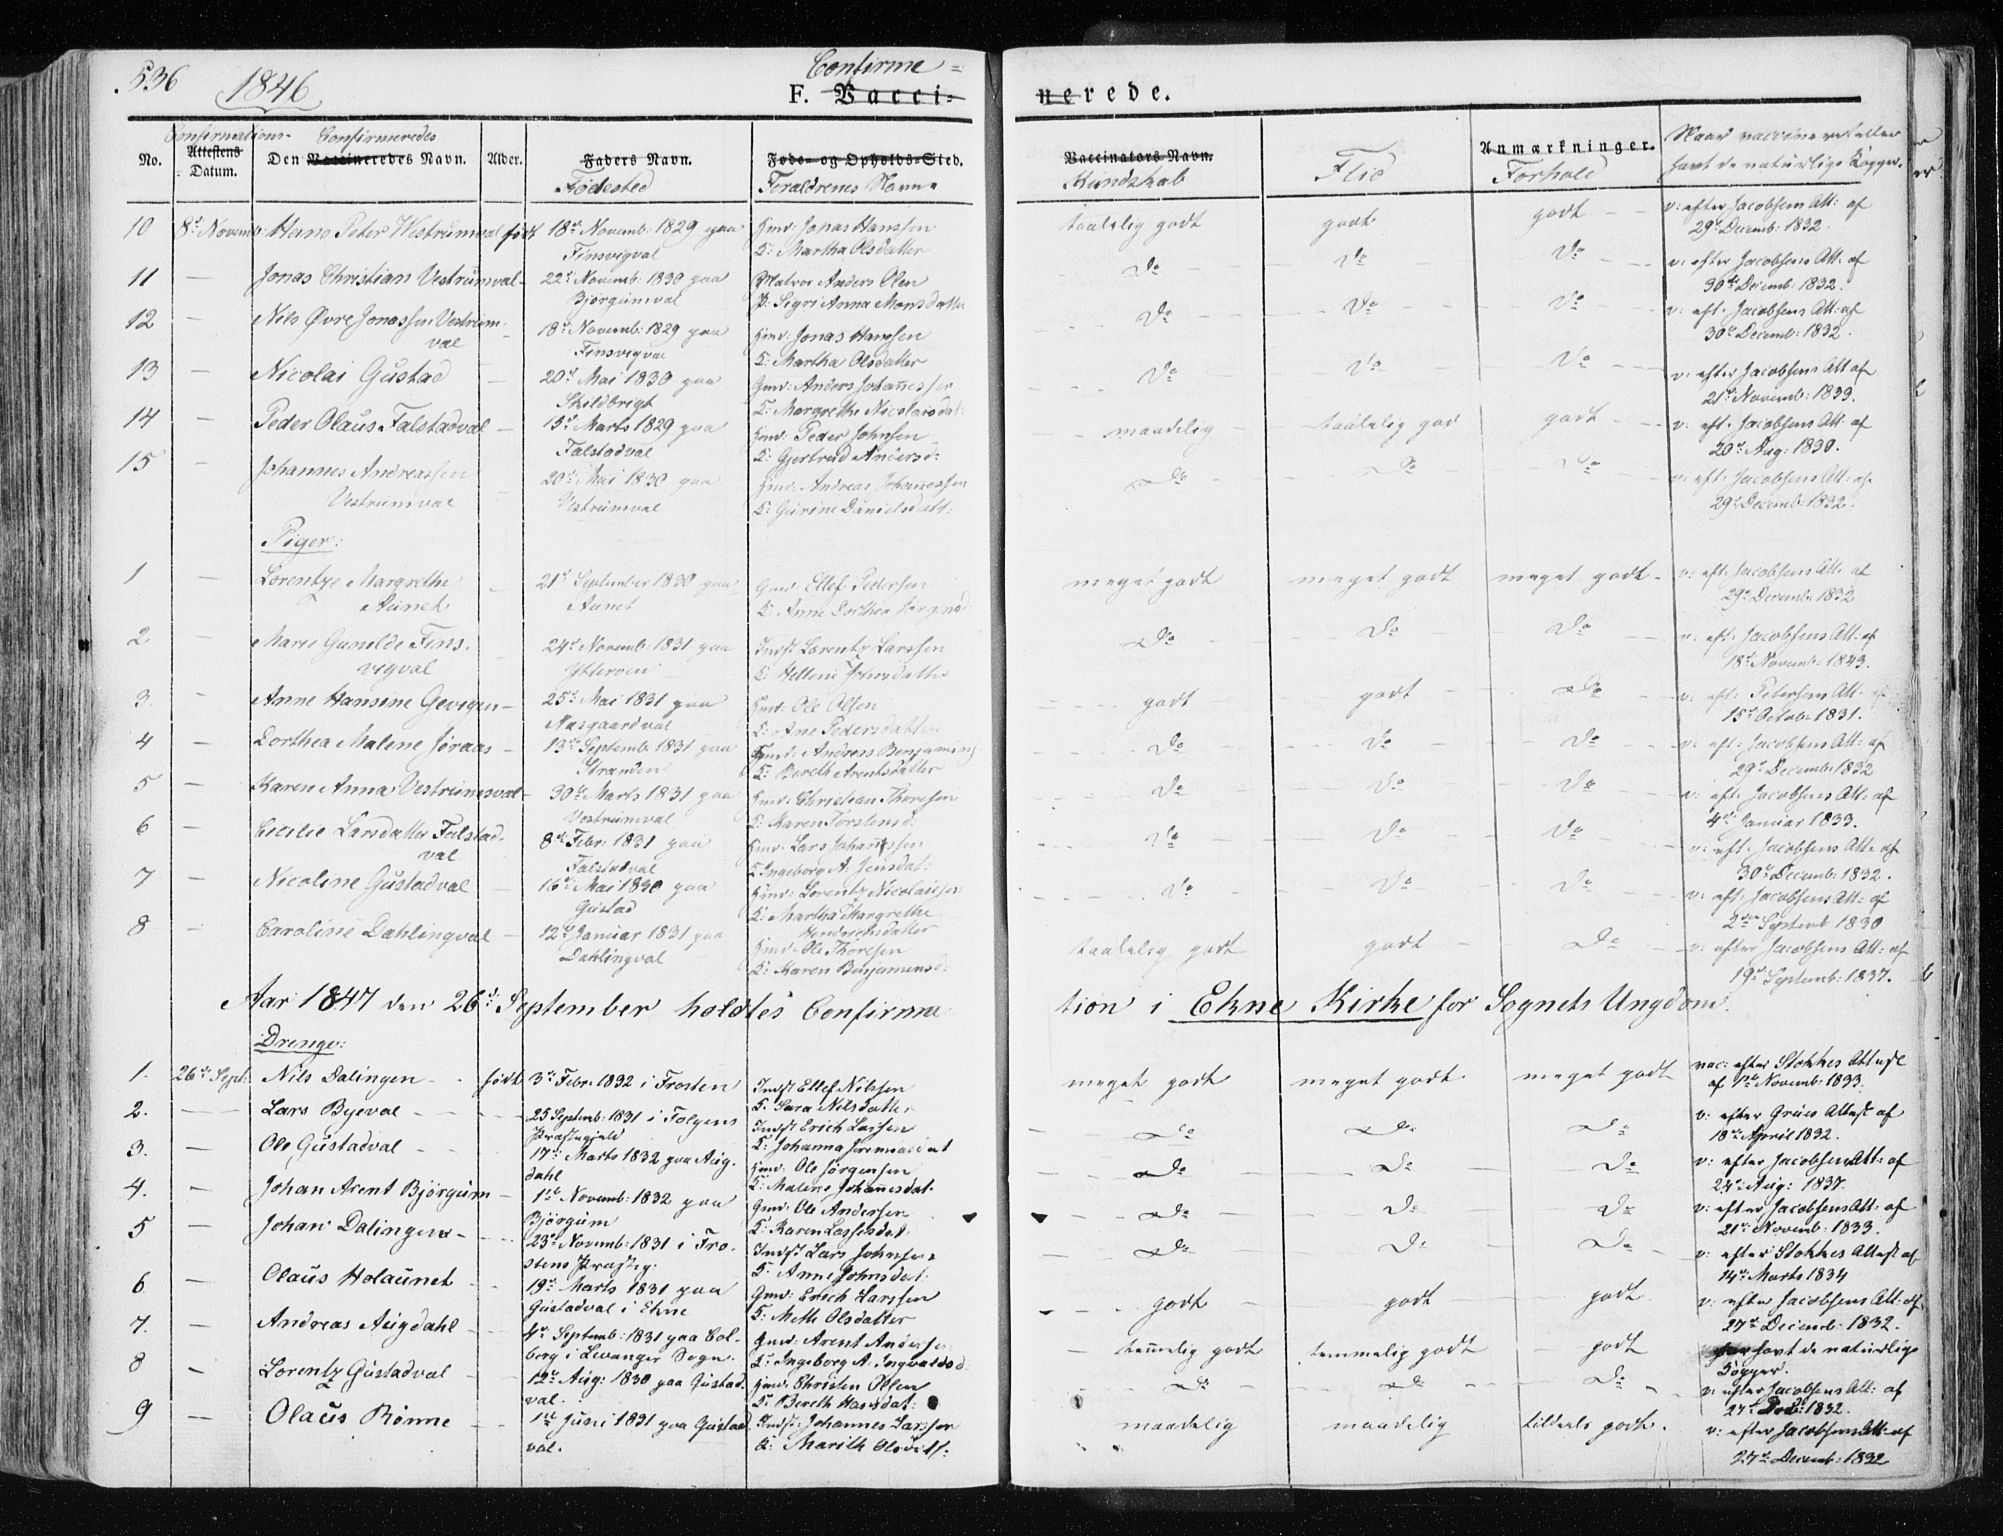 536 1846
Confirme=
F. Vacci= nerede.
Confirmations- Confirmeredes
No. Attestens Datum. Den Vaccineredes Navn. Alder. Faders Navn. Føde- og Opholds-Sted. Vaccinators Navn. Anmærkninger. Naar vaccineret eller
Fødested Forældrenes Navne Kundskab Flid Forhold havt de naturlige Kopper.
10 8de Novemb: Hans Peter Westrumval født 18de Novemb: 1829 paa Gmd: Jonas Hanssen taalelig godt godt godt v: efter Jacobsens Att: af
Finsvigval K: Martha Olsdatter 29de Decemb: 1832.
11 — Jonas Christian Vestrumval 22de Novemb: 1830 paa Anders Olsen Do Do Do v: efter Jacobsens Att: af
Bjørgumval P: Sigri Anna Monsdatter 30te Decemb: 1832.
12 — Nils Øvre Jonassen Vestrum- 18de Novemb: 1829 paa Gmd: Jonas Hanssen Do Do Do v: eft. Jacobsens Att: af
val Finsvigval K: Martha Olsdatter 30te Decemb: 1832.
13 — Nicolai Gustad — 20de Mai 1830 paa Gmd: Anders Johannessen Do Do Do v: efter Jacobsens Att af
Skildbrigt K: Margrethe Nicolaisdat: 21de Novemb: 1839.
14 — Peder Olaus Falstadval — 15de Marts 1829 paa Gmd: Peder Johnsen maadelig taalelig god godt v: eft. Jacobsens Att: af
Falstadval K: Gjertrud Andersd: 20de Aug: 1830.
15 — Johannes Andreassen 20de Mai 1830 paa Gmd: Andreas Johannessen Do Do Do v: eft. Jacobsens Att: af
Vestrumval Vestrumval K: Gurine Danielsdatt: 29de Decemb: 1832.
Piger:
1 — Lorentze Margrethe 21de September 1830 paa Gmd: Ellef Pedersen meget godt meget godt meget godt v: eft. Jacobsens Att: af
Aunet Aunet K: Anne Dorthea Jørgensd: 29de Decemb: 1832
2 — Marie Gunilde Fins- 24de Novemb: 1831 paa Indst Lorentz Larssen Do Do Do v: eft. Jacobsens Att: af
vigval Ytterøen K: Hellene Johnsdatter 18de Novemb: 1843.
3. — Anne Hansine Gevigen — 25de Mai 1831 paa Gmd: Ole Olsen godt godt Do v: eft. Petersens Att: af
Nasgaardval K: Ane Pedersdatter 15de Octob: 1831.
4 — Dorthea Malene Joraas — 13de Septemb: 1831 paa Gmd: Andreas Benjamins: Do Do Do v: eft: Jacobsens Att: af
Stranden K: Bereth Arentsdatter 29de Decemb: 1832
5 — Karen Anna Vestrumsval — 30te Marts 1831 paa Gmd: Christian Thoresen Do Do Do v: eft. Jacobsens Att: af
Vestrumval K: Karen Torstensd: 4de Januar 1833.
6 — Cicilie Larsdatter Falstad- 8de Febr: 1831 paa Gmd: Lars Johanssen Do Do Do v: eft: Jacobsens Att: af
val Falstadval K: Ingeborg A: Jensdat: 30te Decemb: 1832.
7 — Nicoline Gustadval — 16de Mai 1830 paa Gmd: Lorentz Nicolaisen Do Do Do v: eft: Jacobsens Att: af
Gustad K: Martha Margrethe Hendrichsdatter 2den Septemb: 1830
8 — Caroline Dahlingval — 12te Januar 1831 paa Gmd: Ole Thoresen taalelig godt godt Do v: efter Jacobsens Att: af
Dahlingval K: Karen Benjaminsd: 19de Septemb: 1837.
Aar 1847 den 26de September holdtes Confirma tion i Ekne Kirke for Sognets Ungdom.
Drenge:
1. 26de Sept: Nils Dalingen født 3die Febr: 1832 i Frosten Indst Ellef Nilssen meget godt meget godt meget godt vac: efter Stokkes Attest
K: Sara Nilsdatter af 1ste Novemb: 1833.
2. — Lars Byeval 25 Septemb: 1831 i Følgens Indst Erich Lassen Do Do Do v: efter Grües Attest af
Præstegjeld K: Johanna Jeremiasdat 18de April 1832.
3. — Ole Gustadval 17de Marts 1832 paa Aug- Gmd: Ole Jørgensen Do Do Do v: efter Jacobsens Att: af
dahl K: Malene Johannesdat. 24de Aug: 1837.
4. — Johan Arent Bjørgum — 1ste Novemb: 1832 paa Gmd: Ole Andersen Do Do Do v: efter Jacobsens Att: af
Bjørgum K: Karen Lassesdat: 21de Novemb: 1833.
5 — Johan Dalingen 23de Novemb: 1831 i Fro- Indst Lars Johnsen Do Do Do v: efter Stokkes Attest af
stens Præstg: K: Anne Johnsdat: 14de Marts 1834
6 — Olaus Holaunet 19de Marts 1831 paa Gmd: Erich Larssen godt godt godt v: efter Jacobsens Att: af
Gustadval i Ekne K: Meth Olsdatter 27de Decemb: 1832.
7. — Andreas Augdahl 4de Septemb: 1831 paa Col- Gmd: Arent Andersen temmelig godt temmelig godt godt havt de naturlige
berg i Levanger Sogn. K: Ingeborg A: Ingvaldsd: Kopper.
8 — Lorentz Gustadval 12te Aug: 1830 paa Gustad- Gmd: Christen Olsen Do Do Do v: efter Jacobsens Att: af
val. K: Bereth Hansdat: 27de Dec: 1832.
9 — Olaus Rönne 1ste Juni 1831 paa Gustad- Indst: Johannes Larssen maadelig maadelig tildeels godt. v: efter Jacobsens Att: af
val. K: Marith Olsdatt: 27de Decemb: 1832